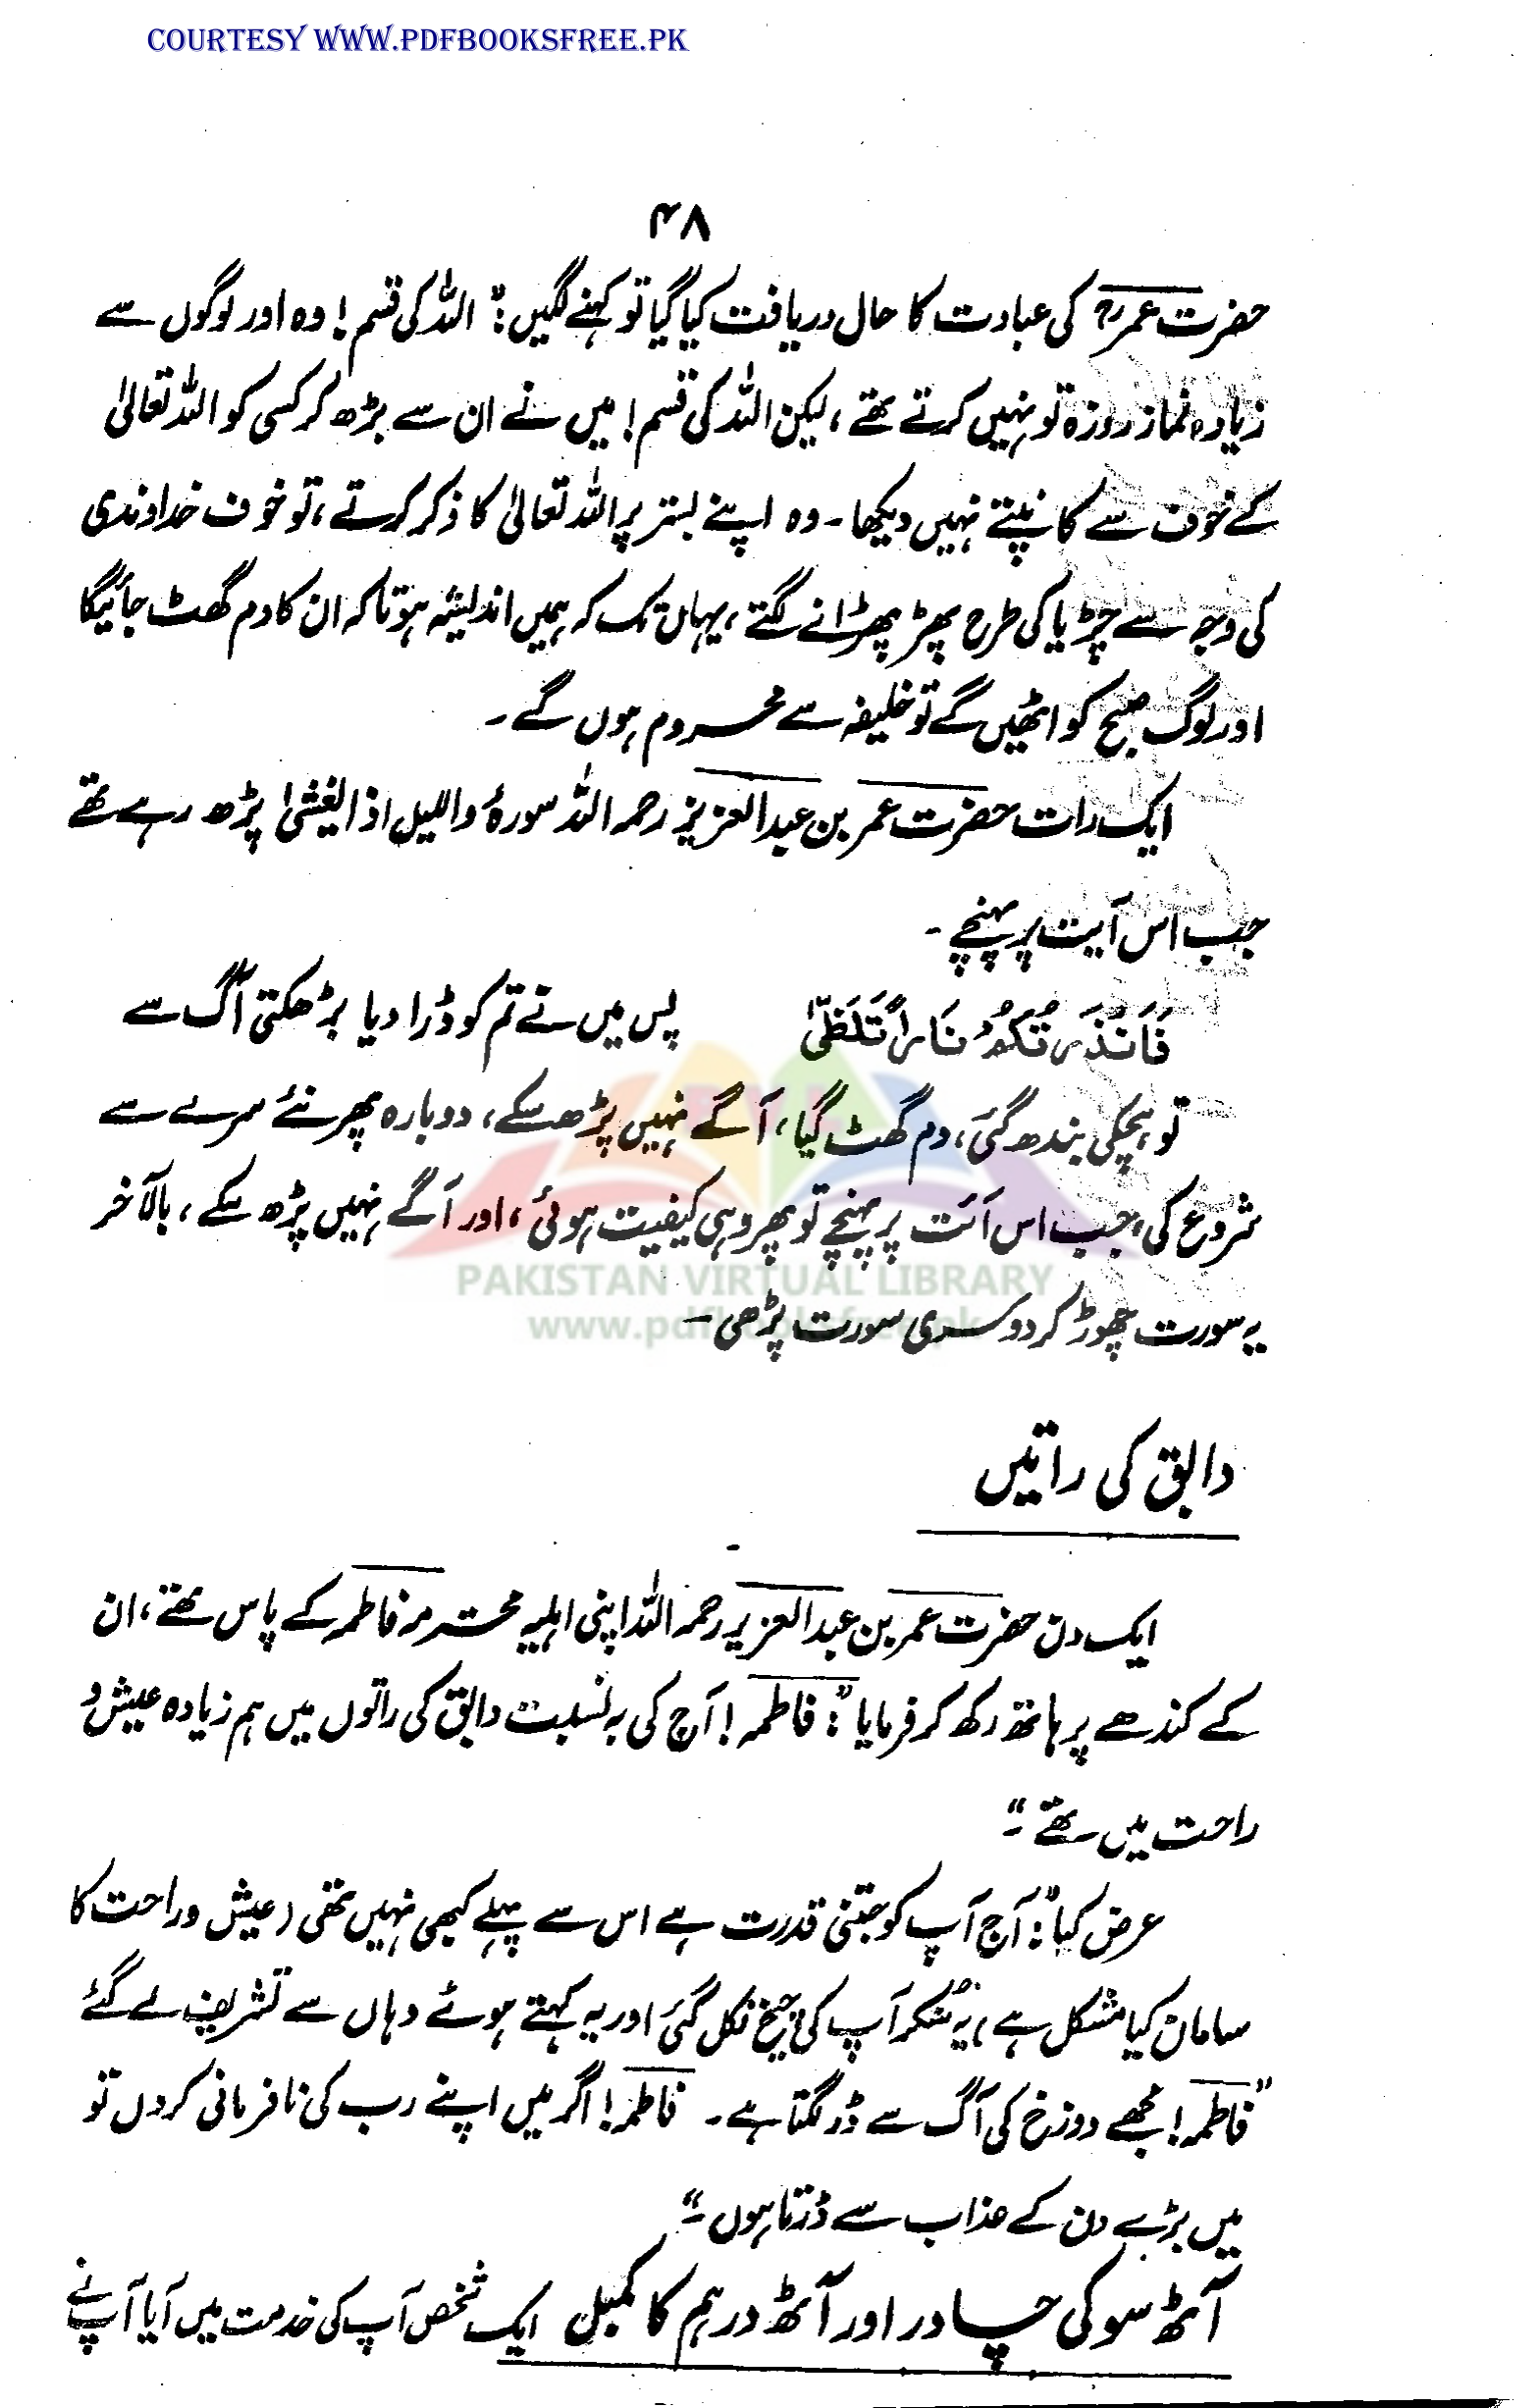 COURTESY WWW.PDFBOOKSFREE.PK
۴۸
حضرت عمرؒ کی عبادت کا حال دریافت کیا گیا تو کہنے لگیں: "اللہ کی قسم! وہ اور لوگوں سے
زیادہ نماز روزہ تو نہیں کرتے تھے، لیکن اللہ کی قسم! میں نے ان سے بڑھ کر کسی کو اللہ تعالیٰ
کے خوف سے کانپتے نہیں دیکھا۔ وہ اپنے بستر پر اللہ تعالیٰ کا ذکر کرتے، تو خوف خداوندی
کی وجہ سے چڑیا کی طرح پھڑپھڑانے لگتے، یہاں تک کہ ہمیں اندیشہ ہوتا کہ ان کا دم گھٹ جائیگا
اور لوگ صبح کو اٹھیں گے تو خلیفہ سے محروم ہوں گے۔
ایک رات حضرت عمر بن عبدالعزیز رحمہ اللہ سورۂ واللیل اذا یغشیٰ پڑھ رہے تھے
جب اس آیت پر پہنچے۔
فَاَنْذَرْتُكُمْ نَاراً تَلَظّیٰ پس میں نے تم کو ڈرا دیا بڑھکتی آگ سے
تو ہچکی بندھ گئی، دم گھٹ گیا، آگے نہیں پڑھ سکے، دوبارہ پھر نئے سرے سے
شروع کی، جب اس آئت پر پہنچے تو پھر وہی کیفیت ہوئی، اور آگے نہیں پڑھ سکے، بالآخر
PAKISTAN VIRTUAL LIBRARY
www.pdfbooksfree.pk
یہ سورت چھوڑ کر دوسری سورت پڑھی۔
دابق کی راتیں
ایک دن حضرت عمر بن عبدالعزیز رحمہ اللہ اپنی اہلیہ محترمہ فاطمہ کے پاس تھے، ان
کے کندھے پر ہاتھ رکھ کر فرمایا: "فاطمہ! آج کی بہ نسبت دابق کی راتوں میں ہم زیادہ عیش و
راحت میں تھے۔"
عرض کیا: "آج آپ کو جتنی قدرت ہے اس سے پہلے کبھی نہیں تھی (عیش و راحت کا
سامان کیا مشکل ہے) یہ سُنکر آپ کی چیخ نکل گئی اور یہ کہتے ہوئے وہاں سے تشریف لے گئے
"فاطمہ! مجھے دوزخ کی آگ سے ڈر لگتا ہے۔ فاطمہ! اگر میں اپنے رب کی نافرمانی کردں تو
میں بڑے دن کے عذاب سے ڈرتا ہوں۔"
آٹھ سو کی چادر اور آٹھ درہم کا کمبل ایک شخص آپ کی خدمت میں آیا آپ نے